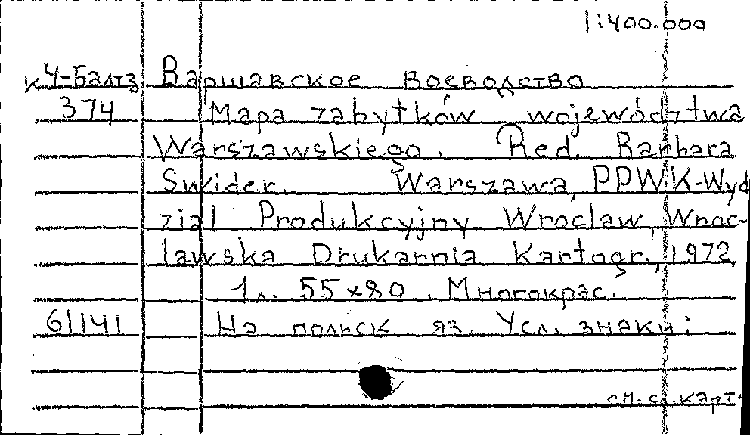 1:400.000
к Ч-Балтз Варшавское воеводство
374 Mapa zabytków województwa
Warszawskiego. Red. Barbara
Swider. Warszawa, PPWK-Wyd
zial Produkcyjny Wroclaw, Wroc-
lawska Drukarnia Kartogr., 1972
1 л. 55x80. Многокрас.
61141 На польск яз. Усл. знаки:
см. сл. карт